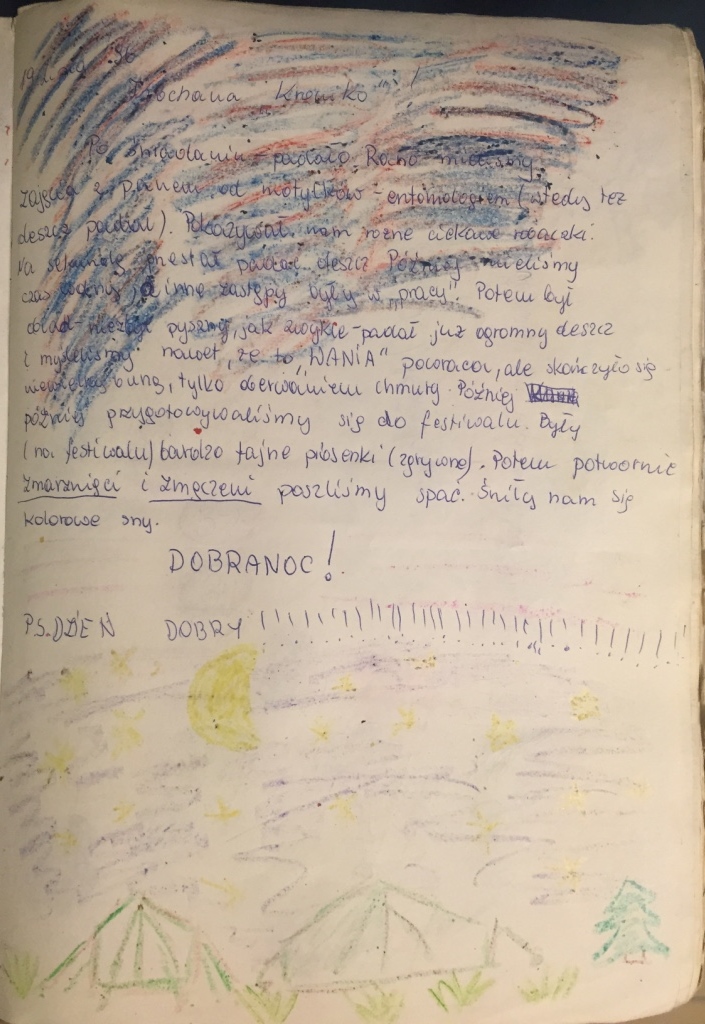 96
Kochana Kroniko" !
Po śniadaniu - padało. Rano mieliśmy
zajęcia z Panem od motylków - entomologiem (wtedy też
deszcz padał). Pokazywał nam różne ciekawe robaczki.
Na przestał padać deszcz. Później mieliśmy
czas wolny, a inne zastępy były w „pracy". Potem był
obiad - pyszny, jak zwykle - padał już ogromny deszcz
i myśleliśmy nawet, że to „WANIA" powraca, ale skończyło się
burzą, tylko oberwaniem chmury. Później
później przygotowywaliśmy się do festiwalu. Były
(na festiwalu) bardzo fajne piosenki (zgrywne). Potem potwornie
zmarznięci i zmęczeni poszliśmy spać. Śniły nam się
kolorowe sny.
DOBRANOC!
P.S. DZIEŃ DOBRY !!!!!!!!!!!!!!!!!!!!!!!!!!!!!!